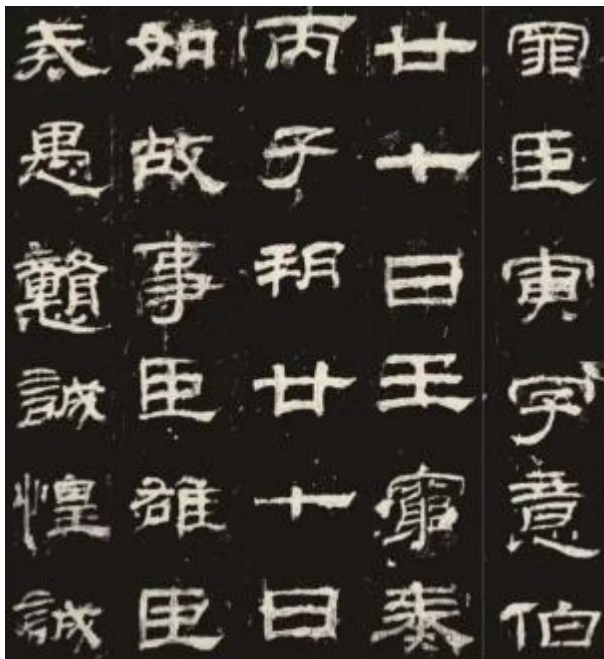 罪臣寅字意伯
廿七日壬寅奏
丙子朔廿七日
如故事臣雄臣
戒愚戇誠惶誠